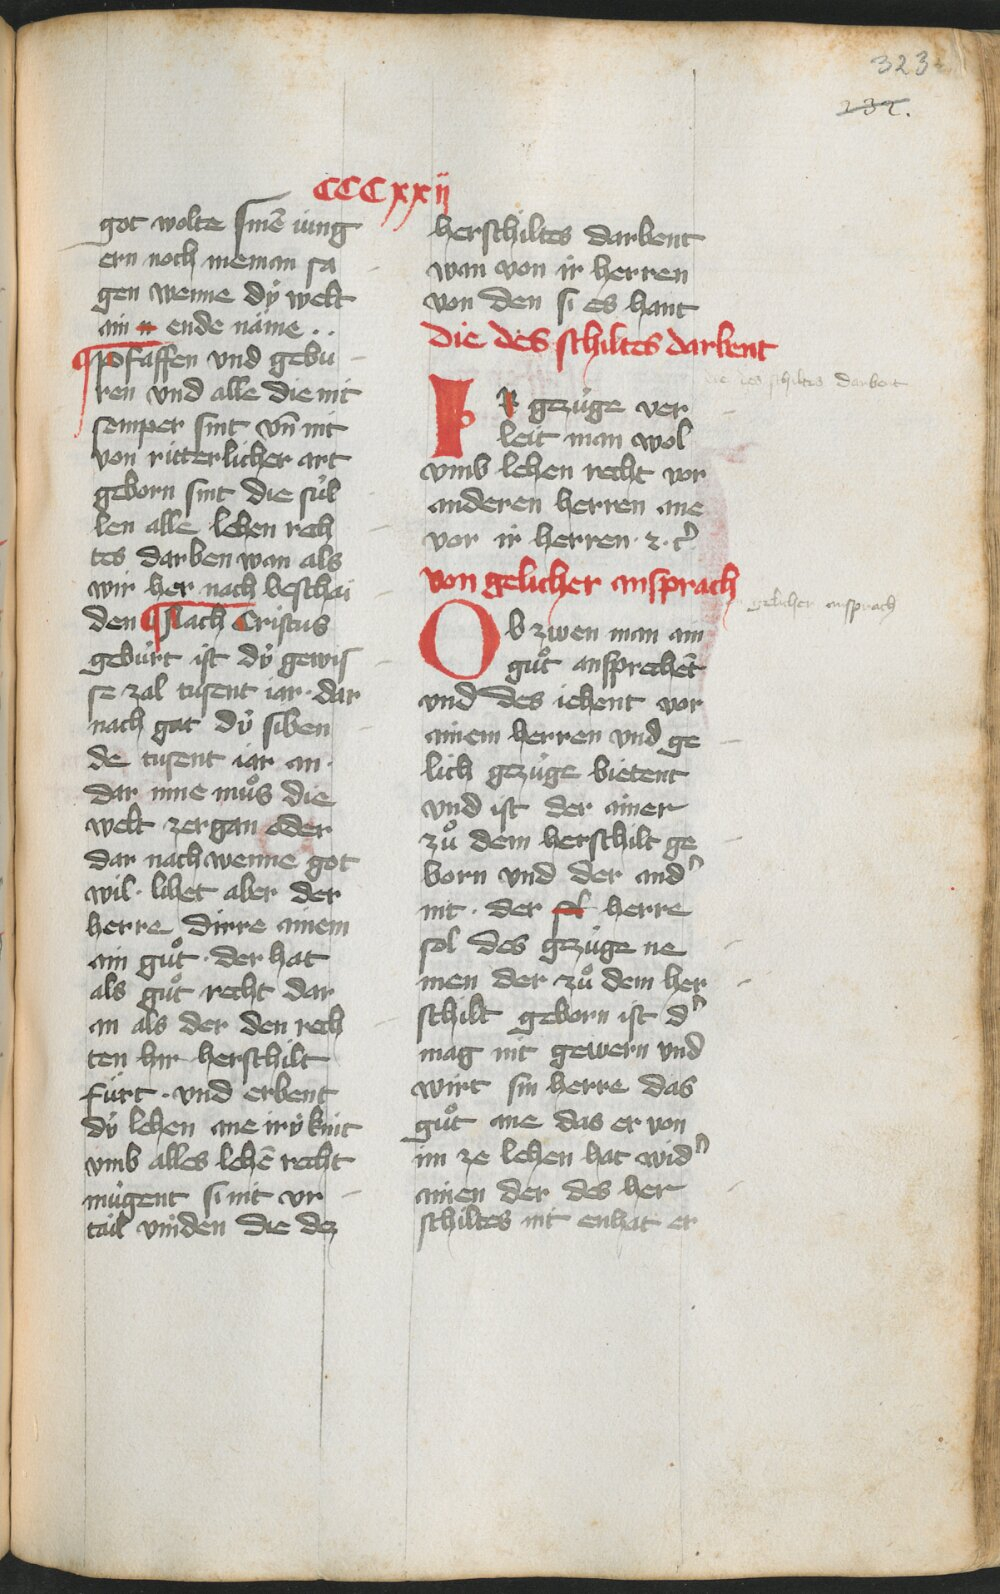 323
232.
CCCxxij
got wolte sinē iung
ern noch nieman sa
gen wenne dÿ welt
ain n ende näme . .
¶ Pfaffen und gebu
ren und alle die nit
semper sint vn̄ nit
von ritterlicher art
geborn sint die sül
len alle lehen rech
tes darben wan als
wir her nach beschai
den ¶ Nach Cristus
gebürt ist dÿ gewis
se zal tusent iar · dar
nach gat dÿ siben
de tusent iar an ·
dar inne můs die
welt zergan oder
dar nach wenne got
wil · lihet aber der
herre dirre ainem
ain gůt · der hat
als gůt recht dar
an als der den rech
ten hin herschilt
fürt · und erbent
dÿ lehen ane irÿ kint
vmb alles lehē recht
mügent si nit vr
tail vinden die dez
herschiltes darbent
wan von ir herren
von den si es hant
die des schiltes darbent
die des schiltes darbent
IR gezüge ver
leit man wol
vmb lehen recht vor
anderen herren ane
vor ir herren · ⁊ · cͬ
von gelicher ansprach
gelicher ansprach
Ob zwen man ain
gůt ansprechēt
und des iehent vor
ainem herren und ge
lich gezüge bietent
und ist der ainer
zů dem herschilt ge
born und der andˀ
nit · der herre
sol des gezüge ne
men der zů dem her
schilt geborn ist dˀ
mag nit gewern und
wirt sin herre das
gůt ane das er von
im ze lehen hat widˀ
ainen der des her
schiltes nit enhat er